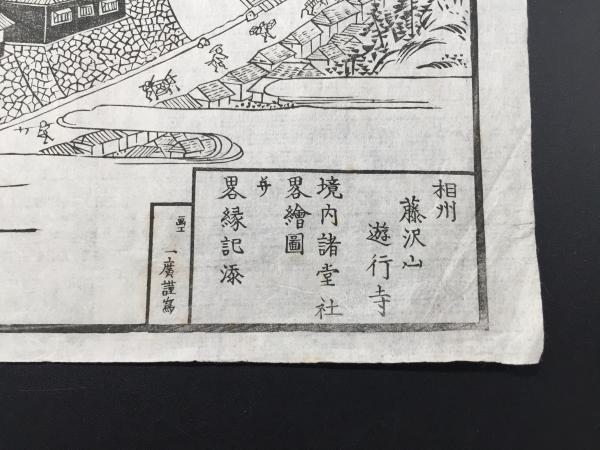 相州
藤沢山
遊行寺
境内諸堂社
畧繪圖
并
畧縁記添
畫工
一廣謹寫